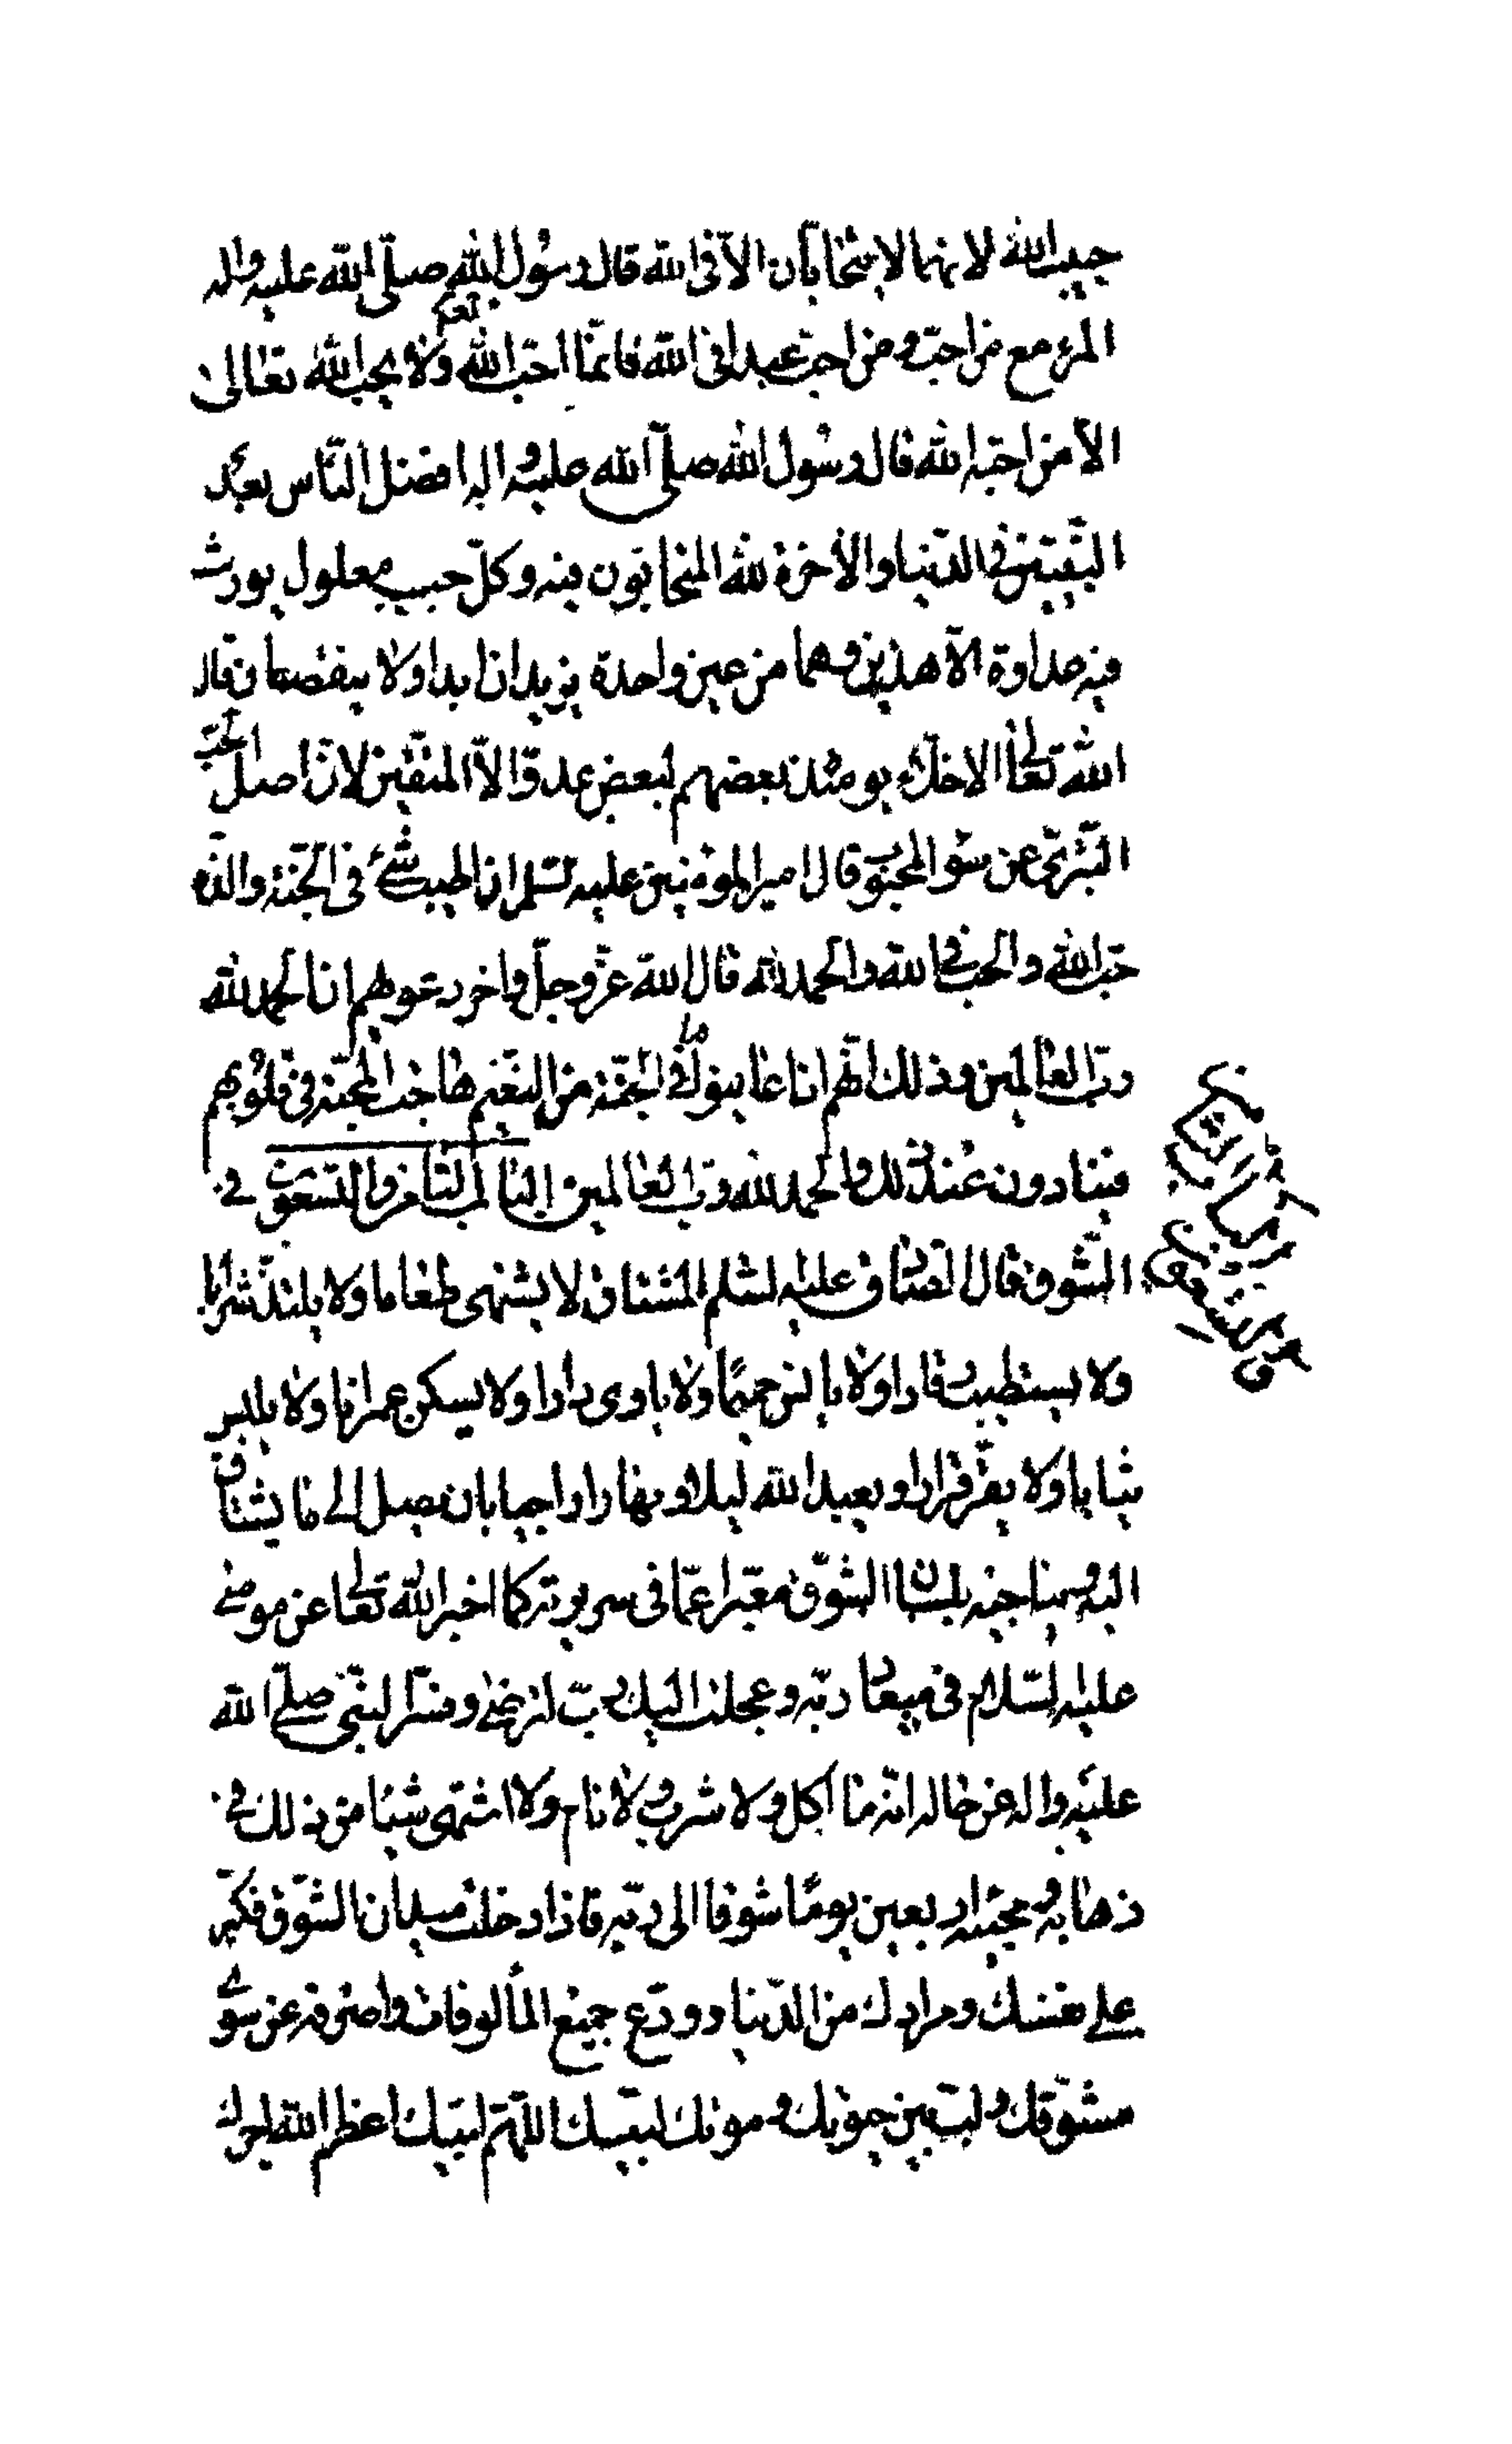 حبيب الله لانهما لا يتحابان الا فى الله قال رسول الله صلى الله عليه واله
المرء مع من احب ومن احب عبدا فى الله فانما احب الله ولا يحب الله تعالى
الا من احبه الله قال رسول الله صلى الله عليه واله افضل الناس بعد
النبيين فى الدنيا والاخرة لله المتحابون فيه وكل حب معلول يورث
فيه عداوة الا هذين وهما من عين واحدة يزيدان ابدا ولا ينقصان قال
الله تعالى الاخلاء يومئذ بعضهم لبعض عدو الا المتقين لان اصل الحب
التبرى عن سوى المحبوب وقال امير المؤمنين عليه السلم ان اطيب شئ فى الجنة والذه
حب الله والحب فى الله والحمد لله قال الله عز وجل واخر دعويهم ان الحمد لله
رب العالمين وذلك انهم اذا عاينوا ما فى الجنة من النعيم هاجت المحبة فى قلوبهم
فينادون عند ذلك والحمد لله رب العالمين الباب الثامن والتسعون فى
الشوق قال الصادق عليه السلم المشتاق لا يشتهى طعاما ولا يلتذ شرابا
ولا يستطيب رقادا ولا يانس حميما ولا ياوى دارا ولا يسكن عمرانا ولا يلبس
ثيابا ولا يقر قرارا ويعبد الله ليلا ونهارا راجيا بان يصل الى ما يشتاق
اليه ويناجيه بلسان الشوق معبرا عما فى سريرته كما اخبر الله تعالى عن موسى
عليه السلام فى ميعاد ربه وعجلت اليك رب لترضى وفسر النبى صلى الله
عليه واله عن حاله انه ما اكل ولا شرب ولا نام ولا اشتهى شيئا من ذلك فى
ذهابه ومجيئه اربعين يوما شوقا الى ربه فاذا دخلت ميدان الشوق فكبر
على نفسك ومرادك من الدنيا وودع جميع المألوفات واصرفه عن سوى
مشوقك ولب بين حيوتك وموتك لبيك اللهم لبيك اعظم الله اجرك